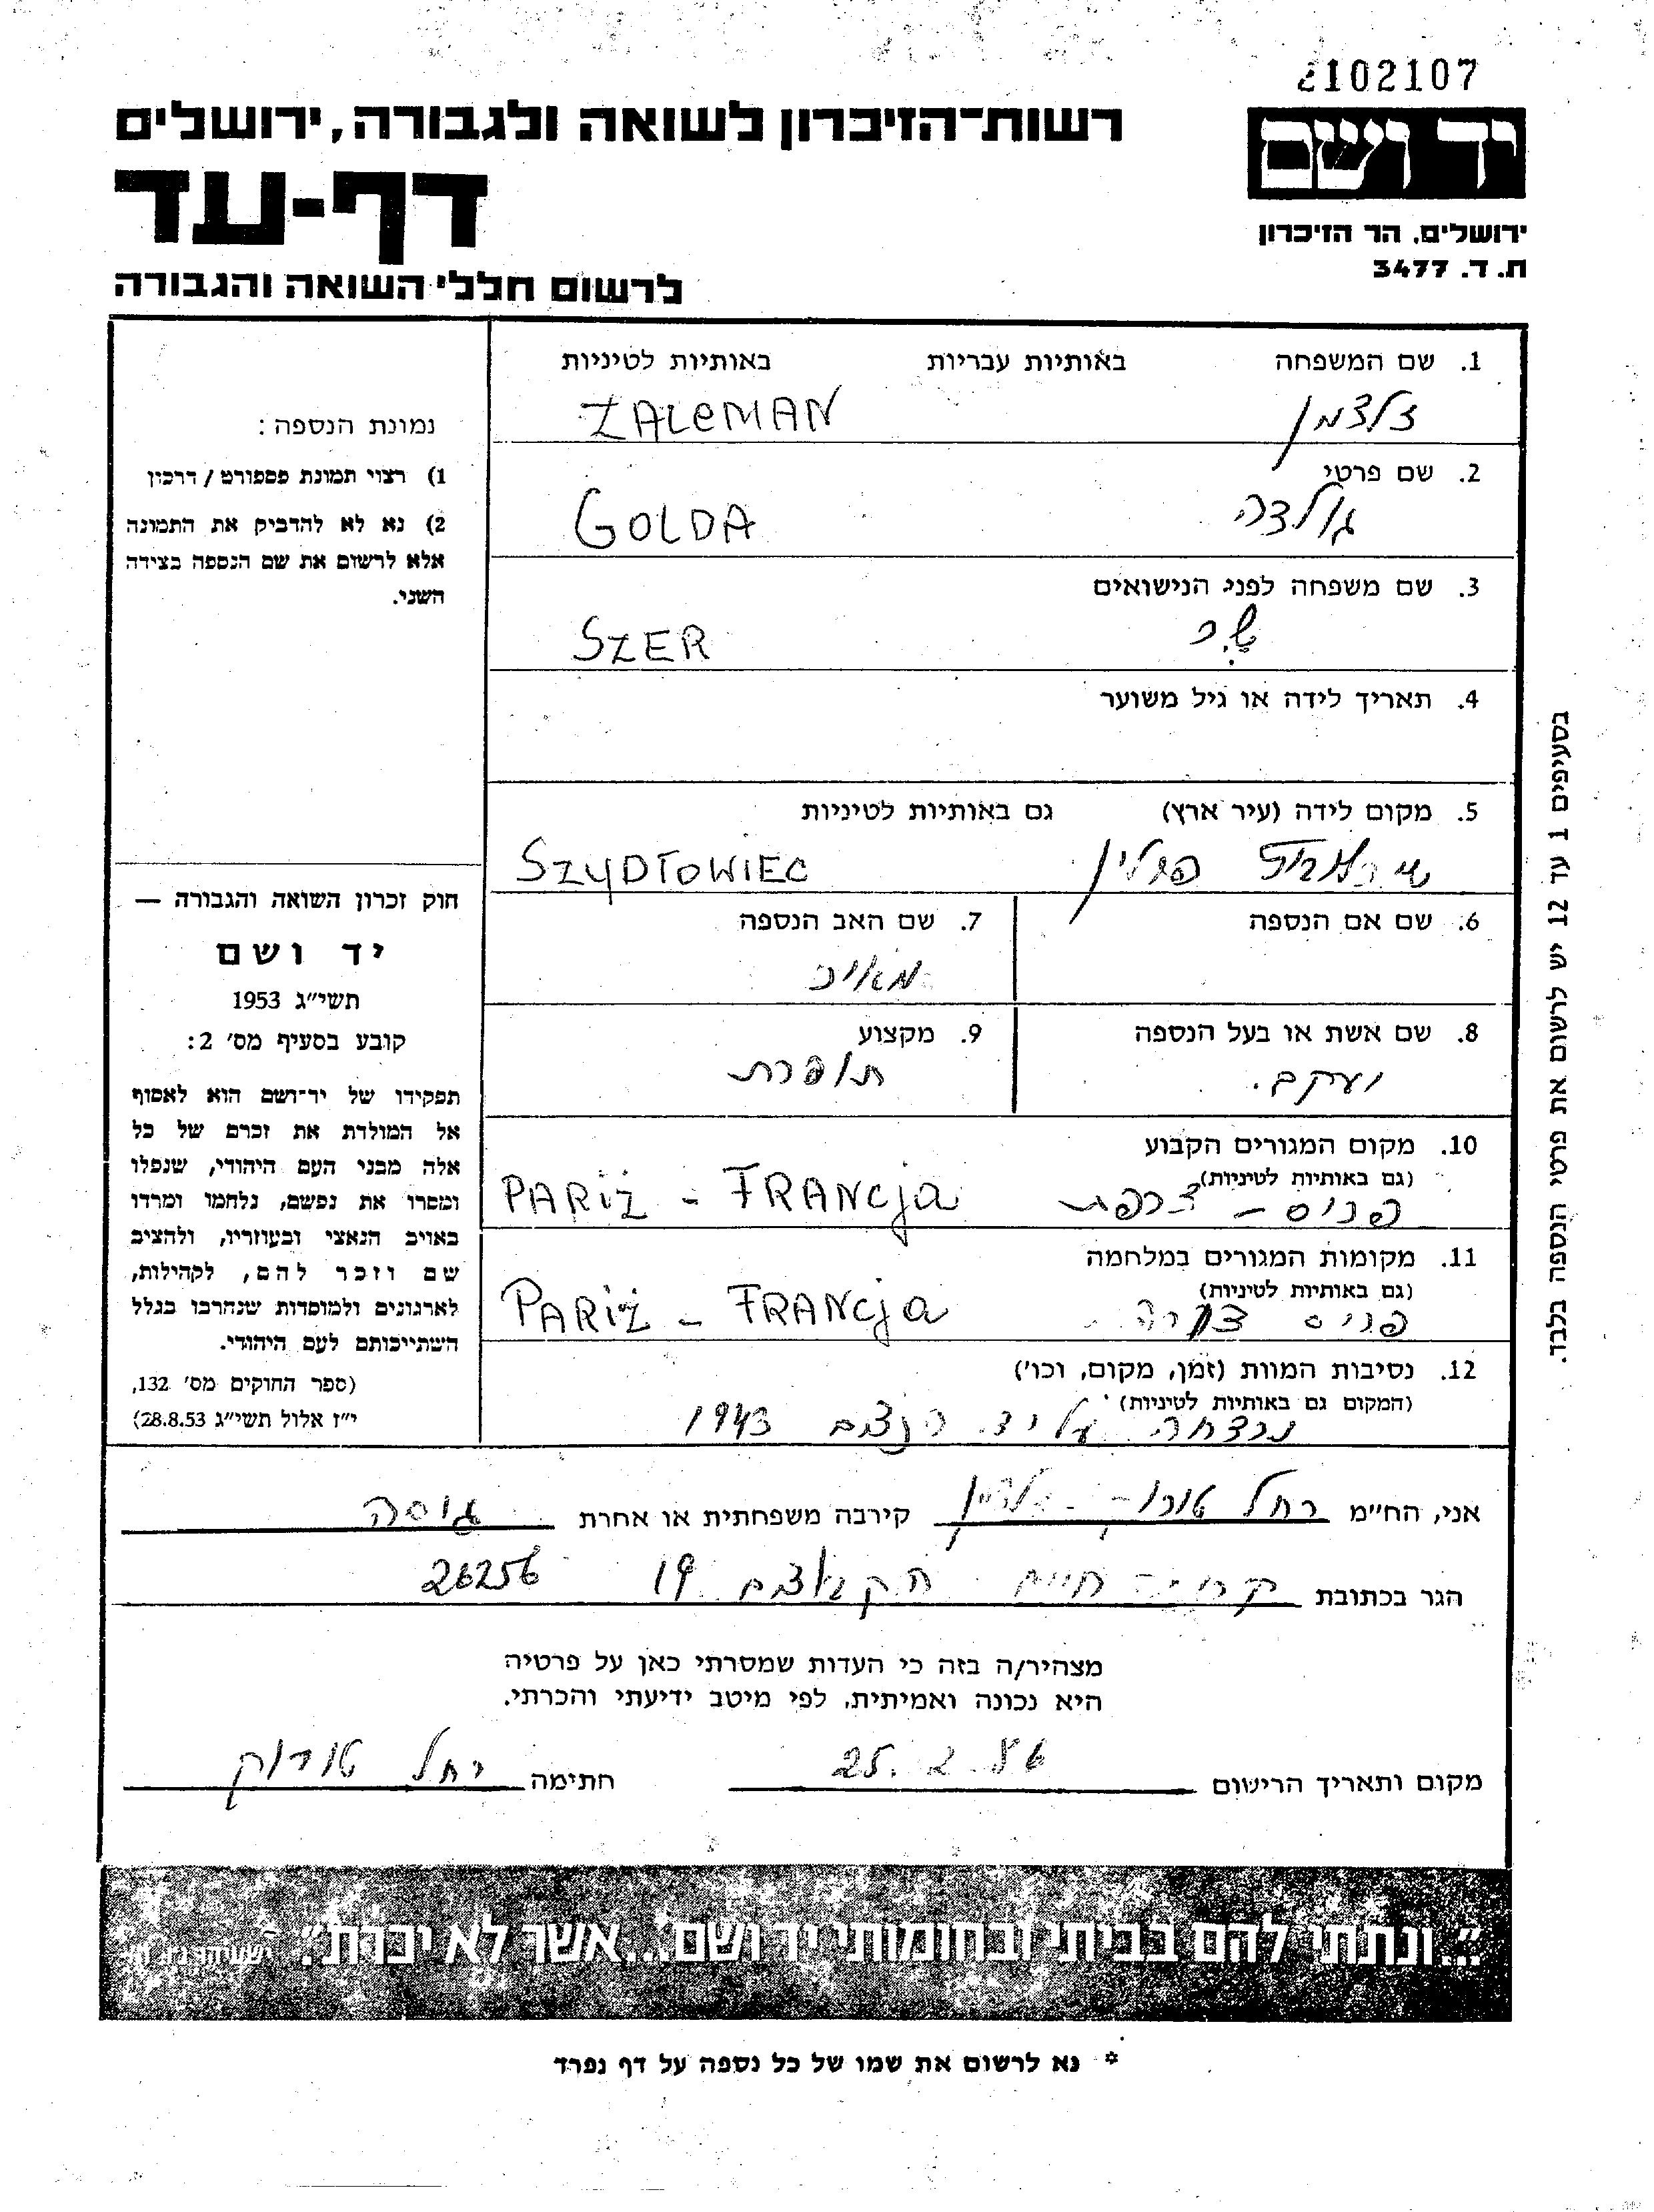 2102107
רשות־הזיכרון לשואה ולגבורה, ירושלים
יד ושם
דף-עד
ירושלים, הר הזיכרון
ת. ד. 3477
לרשום חללי השואה והגבורה
1. שם המשפחה באותיות עבריות באותיות לטיניות
זלצמן ZALCMAN
2. שם פרטי
גולדה GOLDA
3. שם משפחה לפני הנישואים
שר SZER
4. תאריך לידה או גיל משוער
5. מקום לידה (עיר ארץ) גם באותיות לטיניות
פולין SZYDŁOWIEC
6. שם אם הנספה
7. שם האב הנספה
מאיר
8. שם אשת או בעל הנספה
יעקב.
9. מקצוע
תופרת
10. מקום המגורים הקבוע
(גם באותיות לטיניות)
פריס - צרפת PARiż - FRANcja
11. מקומות המגורים במלחמה
(גם באותיות לטיניות)
פריס PARiż - FRANcja
12. נסיבות המוות (זמן, מקום, וכו')
(המקום גם באותיות לטיניות)
נרצחה על יד 1943
תמונת הנספה:
1) רצוי תמונת פספורט / דרכון
2) נא לא להדביק את התמונה
אלא לרשום את שם הנספה בצידה
השני.
חוק זכרון השואה והגבורה —
יד ושם
תשי"ג 1953
קובע בסעיף מס' 2:
תפקידו של יד־ושם הוא לאסוף
אל המולדת את זכרם של כל
אלה מבני העם היהודי, שנפלו
ומסרו את נפשם, נלחמו ומרדו
באויב הנאצי ובעוזריו, ולהציב
שם וזכר להם, לקהילות,
לארגונים ולמוסדות שנהרבו בגלל
השתייכותם לעם היהודי.
(ספר החוקים מס' 132,
י"ז אלול תשי"ג 28.8.53)
בסעיפים 1 עד 12 יש לרשום את פרטי הנספה בלבד.
אני, הח"מ רחל טורק קירבה משפחתית או אחרת גיסה
הגר בכתובת קרית חיים 19 26256
מצהיר/ה בזה כי העדות שמסרתי כאן על פרטיה
היא נכונה ואמיתית, לפי מיטב ידיעתי והכרתי.
מקום ותאריך הרישום 25.2.86 חתימה רחל טורוק
"...ונתתי להם בביתי ובחומותי יד ושם...אשר לא יכרת". ישעיהו נו, ה
* נא לרשום את שמו של כל נספה על דף נפרד